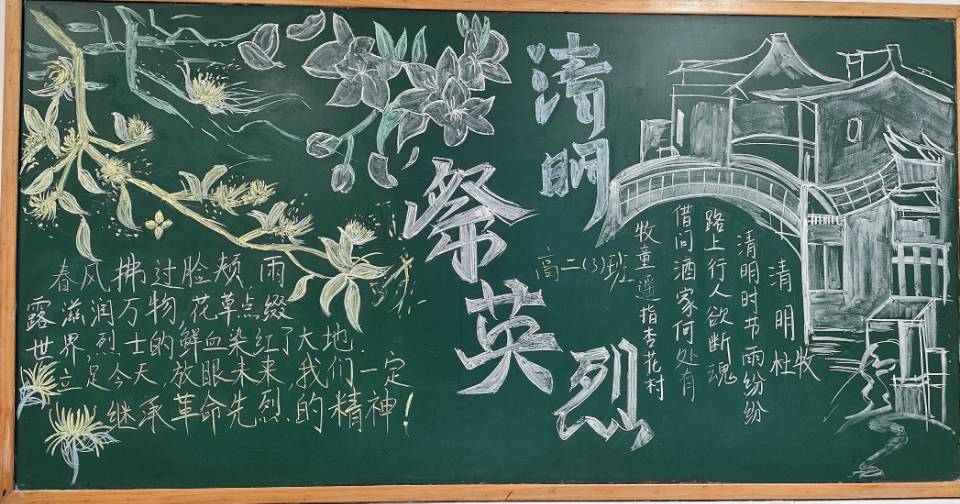 清明
祭英烈
高二(3)班
清明
杜牧
清明时节雨纷纷
路上行人欲断魂
借问酒家何处有
牧童遥指杏花村
春风拂过脸颊,雨
露滋润万物,花草点缀
世界,烈士的鲜血染红了大地.
立足今天,放眼未来,我们一定
继承革命先烈的精神!